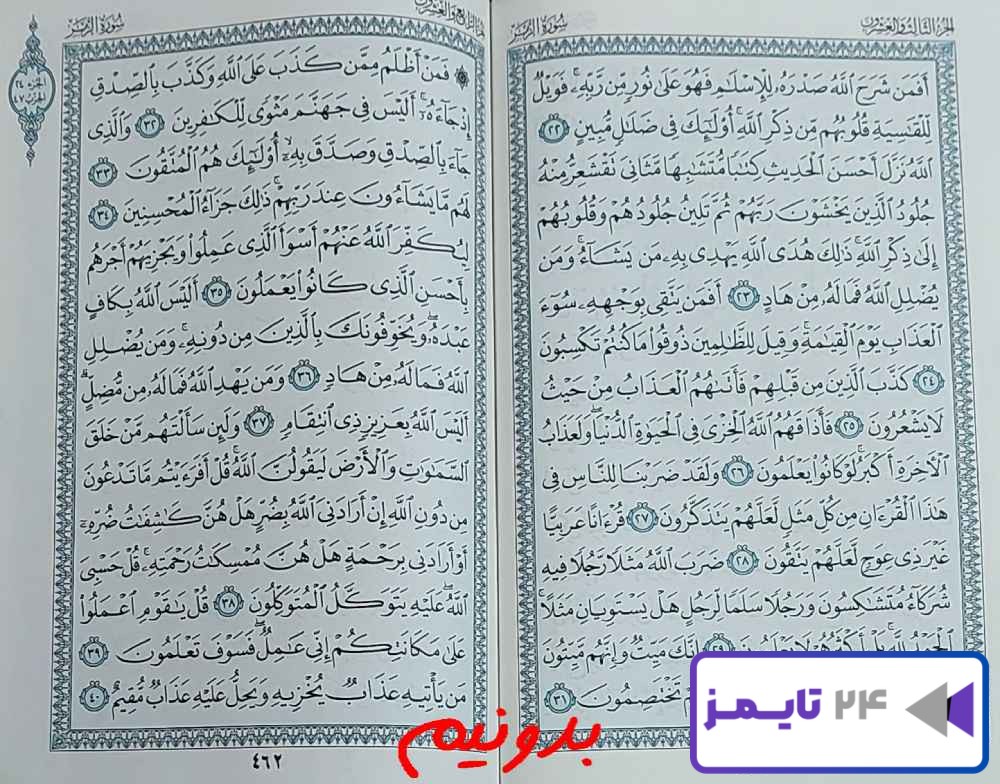 الجزء الثالث والعشرون
سورة الزمر
أَفَمَن شَرَحَ ٱللَّهُ صَدْرَهُۥ لِلْإِسْلَٰمِ فَهُوَ عَلَىٰ نُورٍ مِّن رَّبِّهِۦ ۚ فَوَيْلٌ
لِّلْقَٰسِيَةِ قُلُوبُهُم مِّن ذِكْرِ ٱللَّهِ ۚ أُو۟لَٰٓئِكَ فِى ضَلَٰلٍ مُّبِينٍ ٢٢
ٱللَّهُ نَزَّلَ أَحْسَنَ ٱلْحَدِيثِ كِتَٰبًا مُّتَشَٰبِهًا مَّثَانِىَ تَقْشَعِرُّ مِنْهُ
جُلُودُ ٱلَّذِينَ يَخْشَوْنَ رَبَّهُمْ ثُمَّ تَلِينُ جُلُودُهُمْ وَقُلُوبُهُمْ
إِلَىٰ ذِكْرِ ٱللَّهِ ۚ ذَٰلِكَ هُدَى ٱللَّهِ يَهْدِى بِهِۦ مَن يَشَآءُ ۚ وَمَن
يُضْلِلِ ٱللَّهُ فَمَا لَهُۥ مِنْ هَادٍ ٢٣ أَفَمَن يَتَّقِى بِوَجْهِهِۦ سُوٓءَ
ٱلْعَذَابِ يَوْمَ ٱلْقِيَٰمَةِ ۚ وَقِيلَ لِلظَّٰلِمِينَ ذُوقُوا۟ مَا كُنتُمْ تَكْسِبُونَ
٢٤ كَذَّبَ ٱلَّذِينَ مِن قَبْلِهِمْ فَأَتَىٰهُمُ ٱلْعَذَابُ مِنْ حَيْثُ
لَا يَشْعُرُونَ ٢٥ فَأَذَاقَهُمُ ٱللَّهُ ٱلْخِزْىَ فِى ٱلْحَيَوٰةِ ٱلدُّنْيَا ۖ وَلَعَذَابُ
ٱلْءَاخِرَةِ أَكْبَرُ ۚ لَوْ كَانُوا۟ يَعْلَمُونَ ٢٦ وَلَقَدْ ضَرَبْنَا لِلنَّاسِ فِى
هَٰذَا ٱلْقُرْءَانِ مِن كُلِّ مَثَلٍ لَّعَلَّهُمْ يَتَذَكَّرُونَ ٢٧ قُرْءَانًا عَرَبِيًّا
غَيْرَ ذِى عِوَجٍ لَّعَلَّهُمْ يَتَّقُونَ ٢٨ ضَرَبَ ٱللَّهُ مَثَلًا رَّجُلًا فِيهِ
شُرَكَآءُ مُتَشَٰكِسُونَ وَرَجُلًا سَلَمًا لِّرَجُلٍ هَلْ يَسْتَوِيَانِ مَثَلًا ۚ
ٱلْحَمْدُ لِلَّهِ ۚ بَلْ أَكْثَرُهُمْ لَا يَعْلَمُونَ ٢٩ إِنَّكَ مَيِّتٌ وَإِنَّهُم مَّيِّتُونَ
تَخْتَصِمُونَ ٣١
سورة الزمر
الجزء ٢٤
الحزب ٤٧
فَمَنْ أَظْلَمُ مِمَّن كَذَبَ عَلَى ٱللَّهِ وَكَذَّبَ بِٱلصِّدْقِ
إِذْ جَآءَهُۥٓ ۚ أَلَيْسَ فِى جَهَنَّمَ مَثْوًى لِّلْكَٰفِرِينَ ٣٢ وَٱلَّذِى
جَآءَ بِٱلصِّدْقِ وَصَدَّقَ بِهِۦٓ ۙ أُو۟لَٰٓئِكَ هُمُ ٱلْمُتَّقُونَ ٣٣
لَهُم مَّا يَشَآءُونَ عِندَ رَبِّهِمْ ۚ ذَٰلِكَ جَزَآءُ ٱلْمُحْسِنِينَ ٣٤
لِيُكَفِّرَ ٱللَّهُ عَنْهُمْ أَسْوَأَ ٱلَّذِى عَمِلُوا۟ وَيَجْزِيَهُمْ أَجْرَهُم
بِأَحْسَنِ ٱلَّذِى كَانُوا۟ يَعْمَلُونَ ٣٥ أَلَيْسَ ٱللَّهُ بِكَافٍ
عَبْدَهُۥ ۖ وَيُخَوِّفُونَكَ بِٱلَّذِينَ مِن دُونِهِۦ ۚ وَمَن يُضْلِلِ
ٱللَّهُ فَمَا لَهُۥ مِنْ هَادٍ ٣٦ وَمَن يَهْدِ ٱللَّهُ فَمَا لَهُۥ مِن مُّضِلٍّ ۗ
أَلَيْسَ ٱللَّهُ بِعَزِيزٍ ذِى ٱنتِقَامٍ ٣٧ وَلَئِن سَأَلْتَهُم مَّنْ خَلَقَ
ٱلسَّمَٰوَٰتِ وَٱلْأَرْضَ لَيَقُولُنَّ ٱللَّهُ ۚ قُلْ أَفَرَءَيْتُم مَّا تَدْعُونَ
مِن دُونِ ٱللَّهِ إِنْ أَرَادَنِىَ ٱللَّهُ بِضُرٍّ هَلْ هُنَّ كَٰشِفَٰتُ ضُرِّهِۦٓ
أَوْ أَرَادَنِى بِرَحْمَةٍ هَلْ هُنَّ مُمْسِكَٰتُ رَحْمَتِهِۦ ۚ قُلْ حَسْبِىَ
ٱللَّهُ ۖ عَلَيْهِ يَتَوَكَّلُ ٱلْمُتَوَكِّلُونَ ٣٨ قُلْ يَٰقَوْمِ ٱعْمَلُوا۟
عَلَىٰ مَكَانَتِكُمْ إِنِّى عَٰمِلٌ ۖ فَسَوْفَ تَعْلَمُونَ ٣٩
مَن يَأْتِيهِ عَذَابٌ يُخْزِيهِ وَيَحِلُّ عَلَيْهِ عَذَابٌ مُّقِيمٌ ٤٠
٤٦٢
بدونیم
۲۴ تایمز